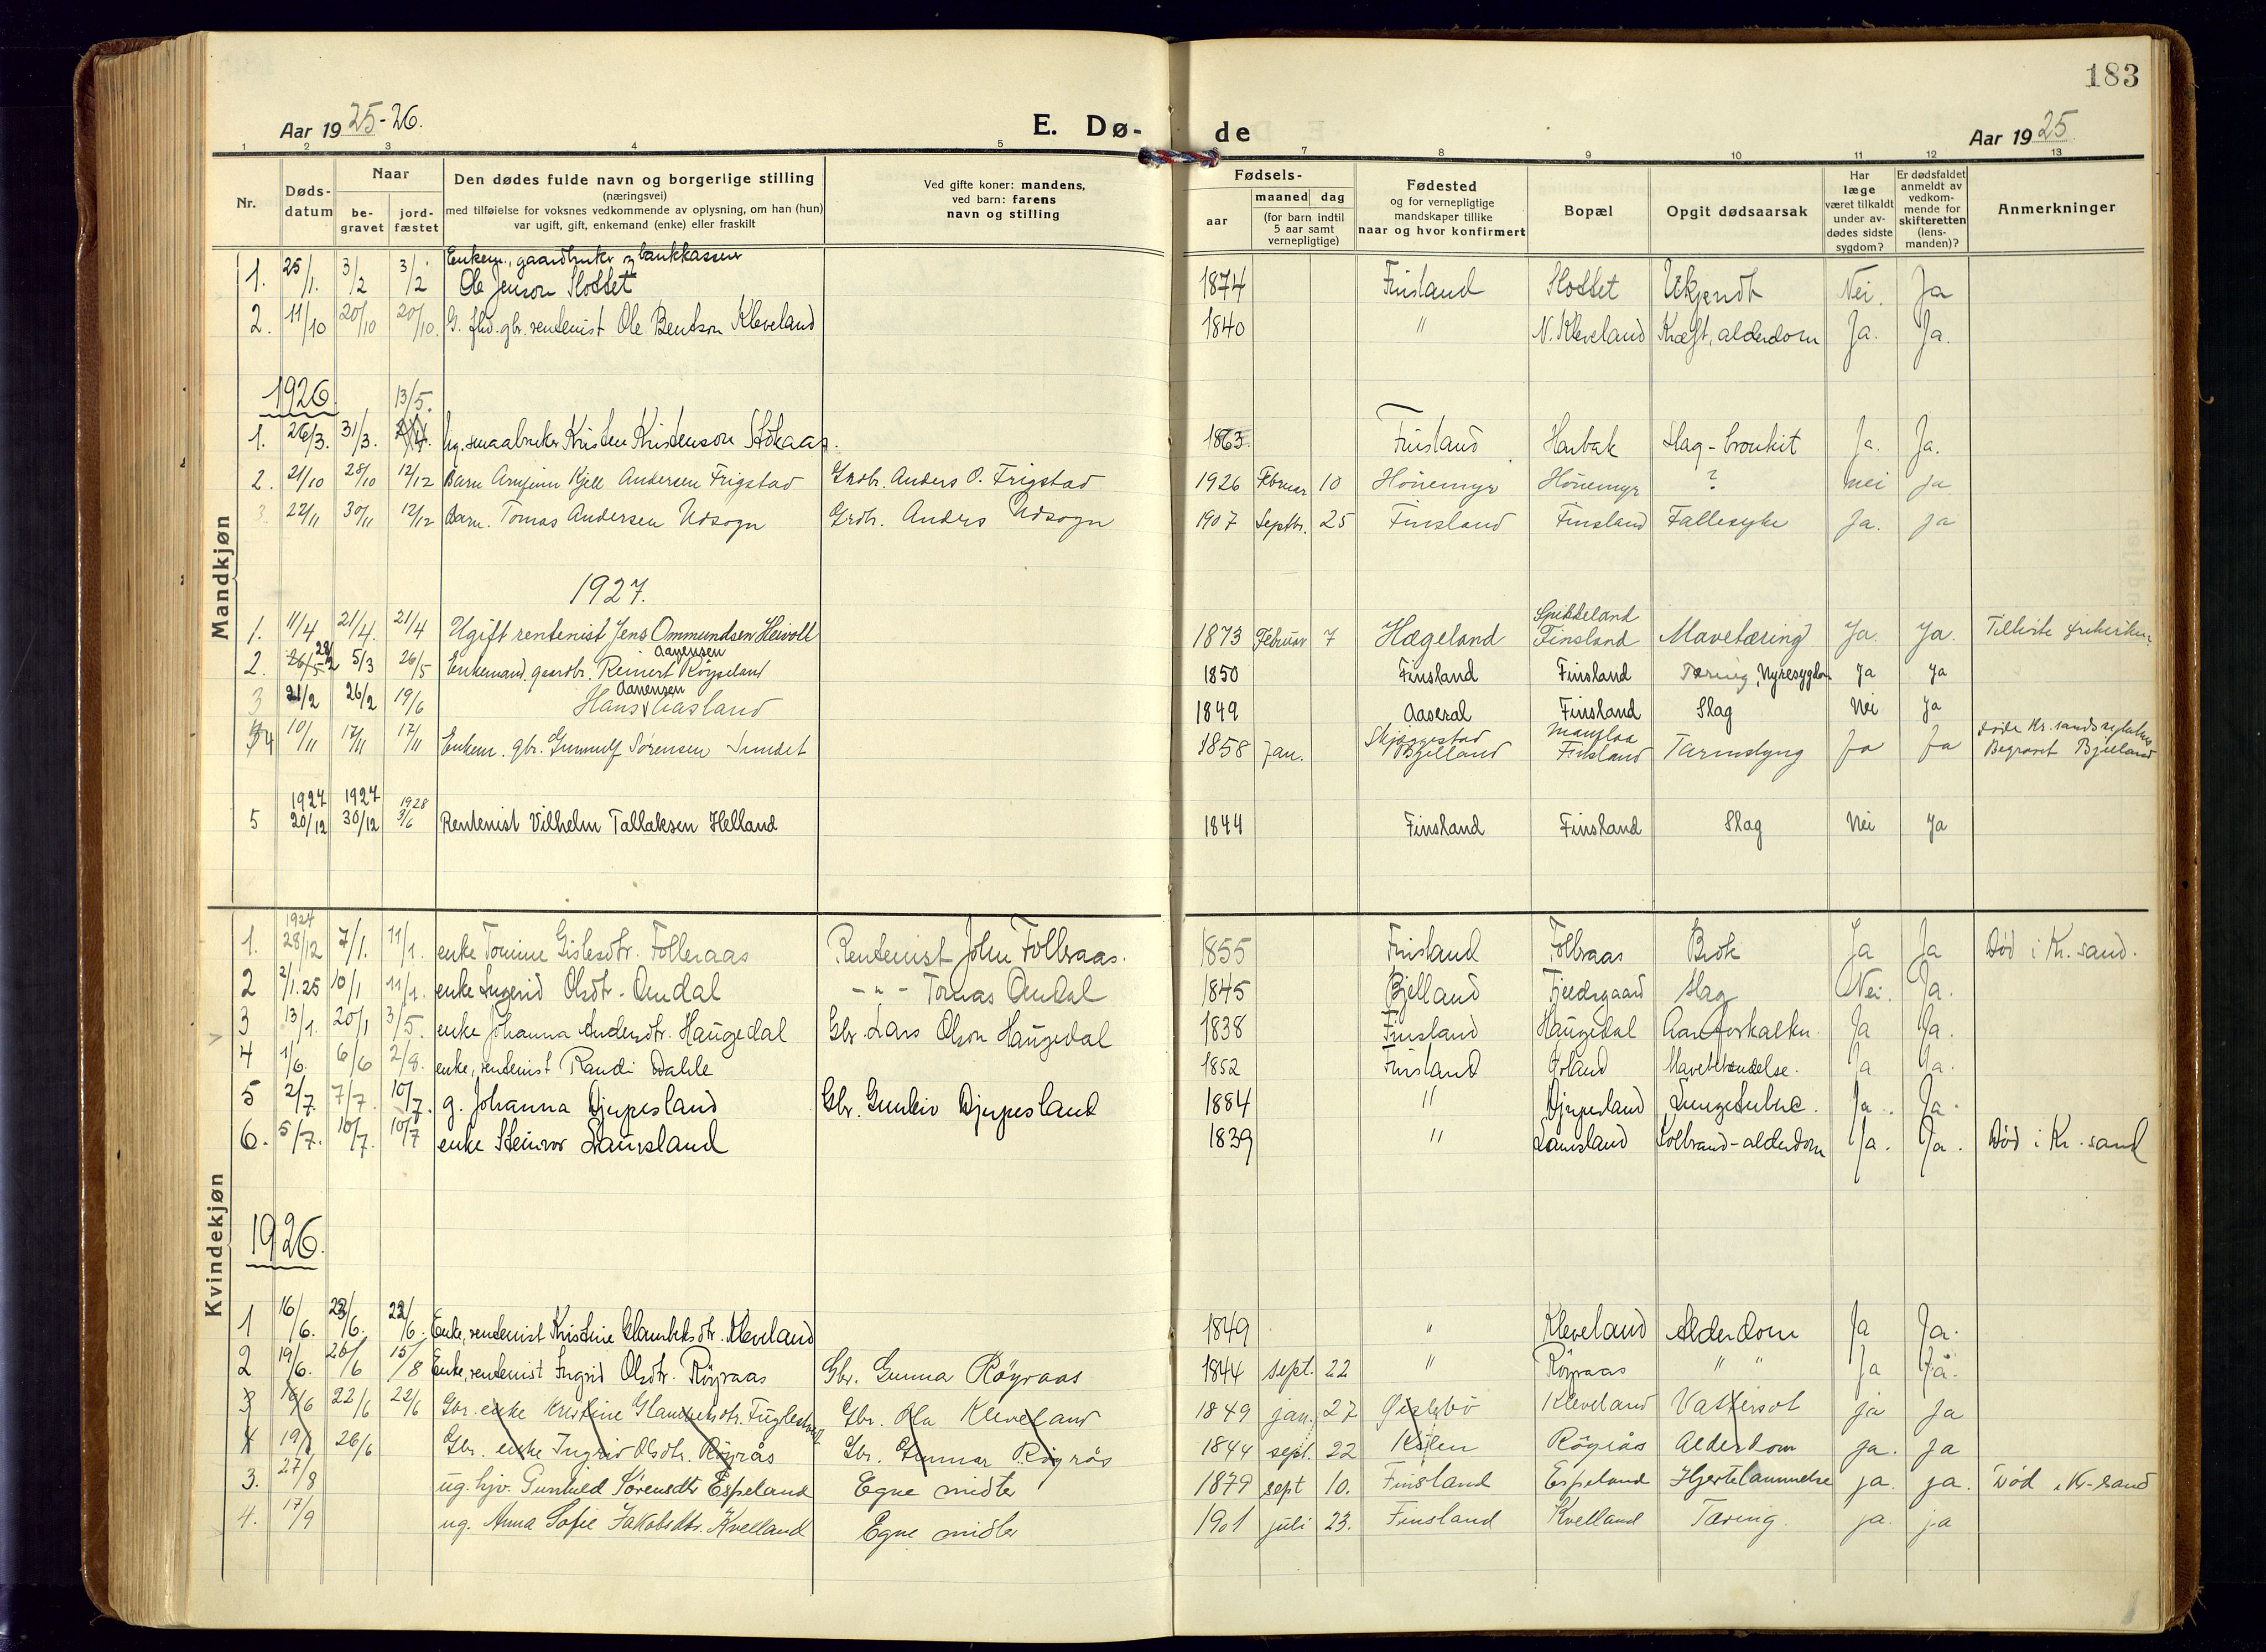 183
Aar 1925-26.
E. Dø-
de
Aar 1925
1 2 3 4 5 7 8 9 10 11 12 13
Nr.
Døds-
datum
Naar
be-
gravet
jord-
fæstet
Den dødes fulde navn og borgerlige stilling
(næringsvei)
med tilføielse for voksnes vedkommende av oplysning, om han (hun)
var ugift, gift, enkemand (enke) eller fraskilt
Ved gifte koner: mandens,
ved barn: farens
navn og stilling
Fødsels-
aar
maaned dag
(for barn indtil
5 aar samt
vernepligtige)
Fødested
og for vernepligtige
mandskaper tillike
naar og hvor konfirmert
Bopæl
Opgit dødsaarsak
Har
læge
været tilkaldt
under av-
dødes sidste
sygdom?
Er dødsfaldet
anmeldt av
vedkom-
mende for
skifteretten
(lens-
manden)?
Anmerkninger
Mandkjøn
Enkem., gaardbruker og bankkasserer
1. 25/1. 3/2 3/2 Ole Jenson Slottet 1874 Finsland Slottet Ukjendt Nei. Ja
2. 11/10 20/10 20/10. G. fhv. gbr. rentenist Ole Bentson Kleveland 1840 " N. Kleveland Kræft, alderdom Ja. Ja.
1926 13/5.
1. 26/3. 31/3. ug. smaabruker Kristen Kristenson Stokaas. 1863. Finsland Harbak Slag-bronkit Ja. Ja.
2. 21/10 28/10 12/12 Barn Arnfinn Kjell Andersen Frigstad Grdbr. Anders O. Frigstad 1926 Februar 10 Hönemyr Hönemyr ? nei ja
3. 22/11 30/11 12/12 Barn. Tomas Andersen Udsogn Grdb. Anders Udsogn 1907 Septbr. 25 Finsland Finsland Fallesyke Ja. ja
1927.
1. 11/4 21/4. 21/4 Ugift rentenist Jens Ommundsen Heivoll 1873 Februar 7 Hægeland Spikkeland Finsland Mavetæring Ja. Ja. Tilhørte frikirken
2. 5/3 26/5 Enkemand. gaardbr. Reinert Aanensen Røyseland 1850 Finsland Finsland Tæring, Nyresygdom Ja Ja
3 21/2 26/2 19/6 Hans Aanensen Aasland 1849 Aaseral Finsland Slag Nei Ja
4 10/11 17/11 17/11 Enkem. gbr. Gunnulf Sørensen Sundet 1858 Jan. Skjeggestad Bjelland Manflaa Finsland Tarmslyng Ja Ja døde Kr.sands sykehus Begravet Bjelland
5 1927 20/12 1927 30/12 1928 3/6 Rentenist Vilhelm Tallaksen Helland 1844 Finsland Finsland Slag Nei Ja
Kvindekjøn
1. 1924 28/12 7/1. 11/1. enke Tomine Gislesdtr. Folleraas Rentenist John Follraas. 1855 Finsland Follraas Brok Ja Ja Død i Kr.sand.
2 2/1.25 10/1 11/1. enke Ingerid Olsdtr. Omdal -"- Tomas Omdal 1845 Bjelland Fjeldsgaard Slag Nei. Ja.
3 13/1. 20/1 3/5. enke Johanna Andersdtr. Haugedal Gbr. Lars Olson Haugedal 1838 Finsland Haugedal Aareforkalkn. Ja Ja.
4 1/6. 6/6 2/8. enke, rentenist Randi Dahle 1852 Finsland Øvland Mavebetændelse. Ja Ja.
5 2/7. 7/7. 10/7. g. Johanna Djupesland Gbr. Gunleiv Djupesland 1884 " Djupesland Lungetuberc. Ja. Ja.
6. 5/7. 10/7. 10/7 enke Steinvor Launsland 1839 " Launsland Kolbrand-alderdom Ja. Ja. Død i Kr.sand
1926.
1 16/6. 22/6. 22/6. Enke, rentenist Kristine Glamseksdtr. Kleveland 1849 " Kleveland Alderdom Ja Ja.
2 19/6. 26/6 15/8 Enke, rentenist Ingrid Olsdtr. Röyraas Gbr. Gunnar Röyraas 1844 sept. 22 " Röyraas " " Ja Ja.
3 16/6 22/6 22/6 Gbr. enke Kristine Glamseksdtr. Fuglestvedt Gbr. Ola Kleveland 1849 jan. 27 Øislebö Kleveland Vattersot ja ja
4 19/6 26/6 Gbr. enke Ingrid Olsdtr. Röyrås Gbr. Gunnar Röyrås 1844 sept. 22 Kilen Röyrås Alderdom ja. ja
3. 27/8 ug. hjv. Gunhild Sørensdtr Espeland Egne midler 1879 sept 10. Finsland Espeland Hjertelammelse ja. ja. Død i Kr.sand
4. 17/9 ug. Anna Sofie Jakobsdtr. Kvelland Egne midler 1901 juli 23. Finsland Kvelland Tæring. ja. ja